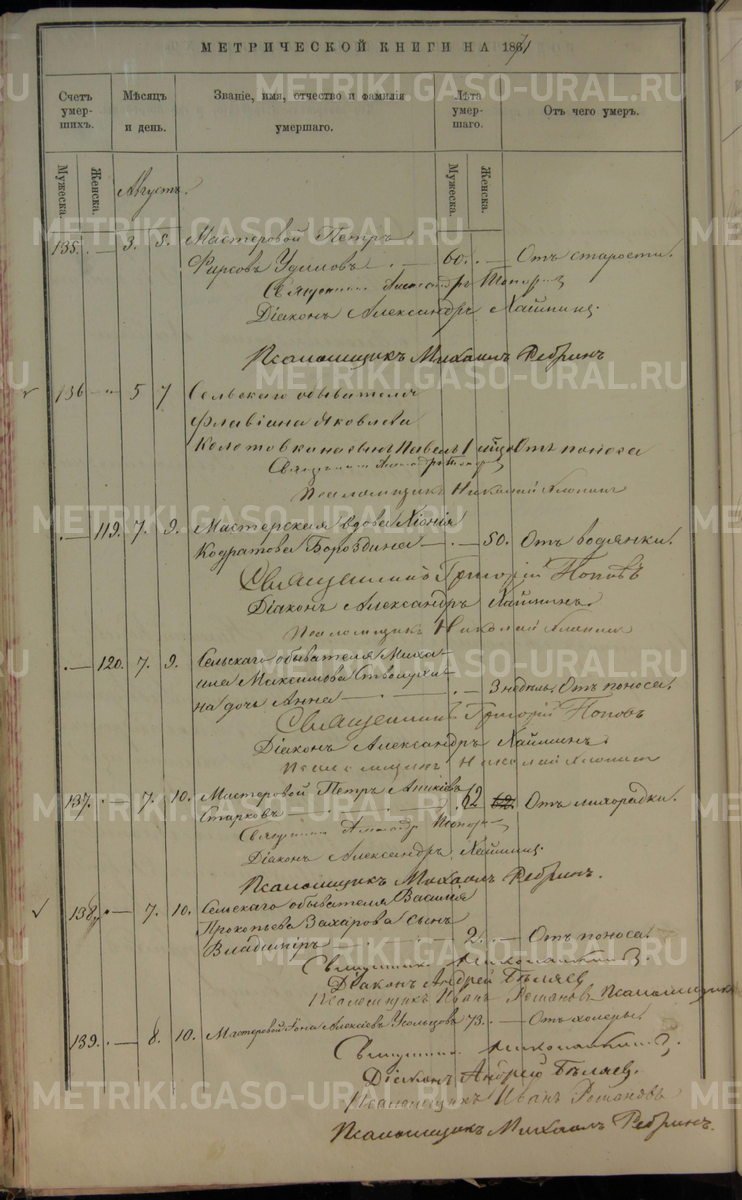 МЕТРИЧЕСКОЙ КНИГИ НА 1871
Счетъ умерших.
Мѣсяцъ и день.
Званіе, имя, отчество и фамилія умершаго.
Лѣта умершаго.
Отъ чего умеръ.
Мужеска.
Женска.
Мужеска.
Женска.
Августъ.
135. — 3. 5. Мастеровой Петръ
Фирсовъ — 60. — Отъ старости.
Александръ
Діаконъ Александръ
Псаломщикъ Михаилъ Ребринъ
136 — 5 7 Сельскаго обывателя
Флавіана Яковлева
сынъ Павелъ 1 Отъ поноса
Псаломщикъ Николай
— 119. 7. 9. Мастерская вдова
Кодратова Бороздина — 50. Отъ водянки.
Священникъ Григорій Поповъ
Діаконъ Александръ
Псаломщикъ Николай
— 120. 7. 9. Сельскаго обывателя Миха-
ила Максимова
на дочь Анна — 3 недѣль. Отъ поноса.
Священникъ Григорій Поповъ
Діаконъ Александръ
Псаломщикъ Николай
137. — 7. 10. Мастеровой Петръ
Старковъ 62 Отъ лихорадки.
Діаконъ Александръ
Псаломщикъ Михаилъ Ребринъ.
138 — 7. 10. Сельскаго обывателя Василія
Прокопьева Захарова сынъ
Владиміръ 2. — Отъ поноса.
Священникъ
Діаконъ Андрей Бѣляев
Псаломщикъ Иванъ Романовъ Псаломщикъ
139. — 8. 10. Мастеровой Іона Алексѣевъ 73. — Отъ холеры.
Священникъ
Діаконъ Андрей Бѣляев.
Псаломщикъ Иванъ Романовъ
Псаломщикъ Михаилъ Ребринъ.
METRIKI.GASO-URAL.RU